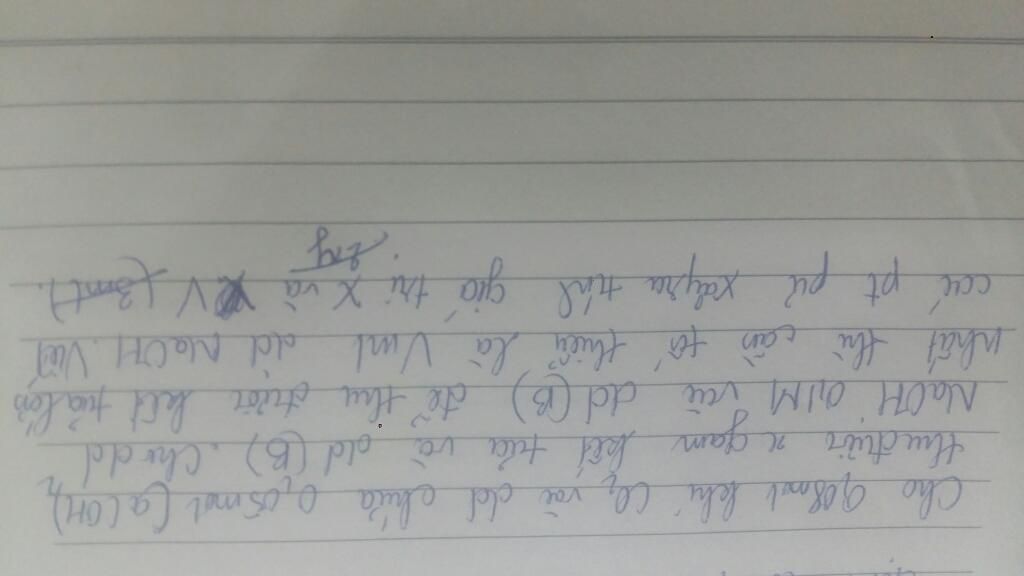 Cho 0,08mol khí CO2 vào dd chứa 0,05mol Ca(OH)2
thu được x gam kết tủa và dd (B). Cho dd
NaOH 0,1M vào dd (B) để thu được kết tủa lớn
nhất thì cần tối thiểu là Vml dd NaOH. Viết
các pt pứ xảy ra tính giá trị x và V